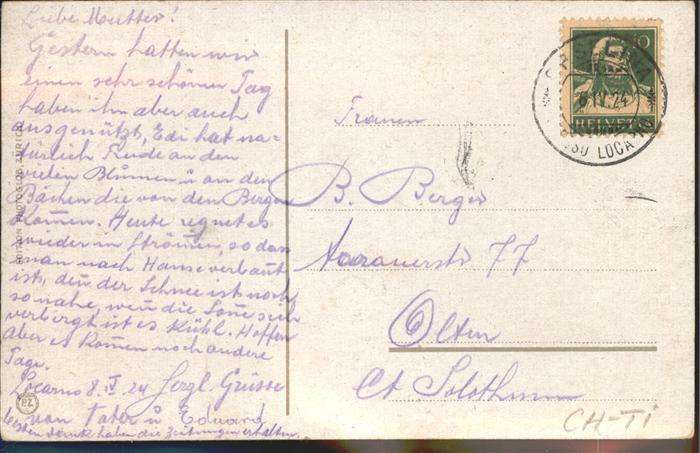 Liebe Mutter!
Gestern hatten wir
einen sehr schönen Tag
haben ihn aber auch
ausgenützt, Edi hat na-
türlich Freude an den
vielen Blumen u an den
Bächen die von den Bergen
kom̅en. Heute regnet es
wieder in Strömen, so dass
man nach Hause verbannt
ist, den̅ der Schnee ist noch
so nahe, wen̅ die Son̅e sich
verbergt ist es kühl. Hoffen
aber es kom̅en noch andere
Tage.
Locarno 8. IV. 24 Herzl. Grüsse
von Vater u Eduard
Besten Dank haben die Zeitungen erhalten.
Frauen
B. Berger
Aarauerstr 77
Olten
Ct Solothurn
CH-TI
10
HELVETIA
24
LOCARNO
PZ